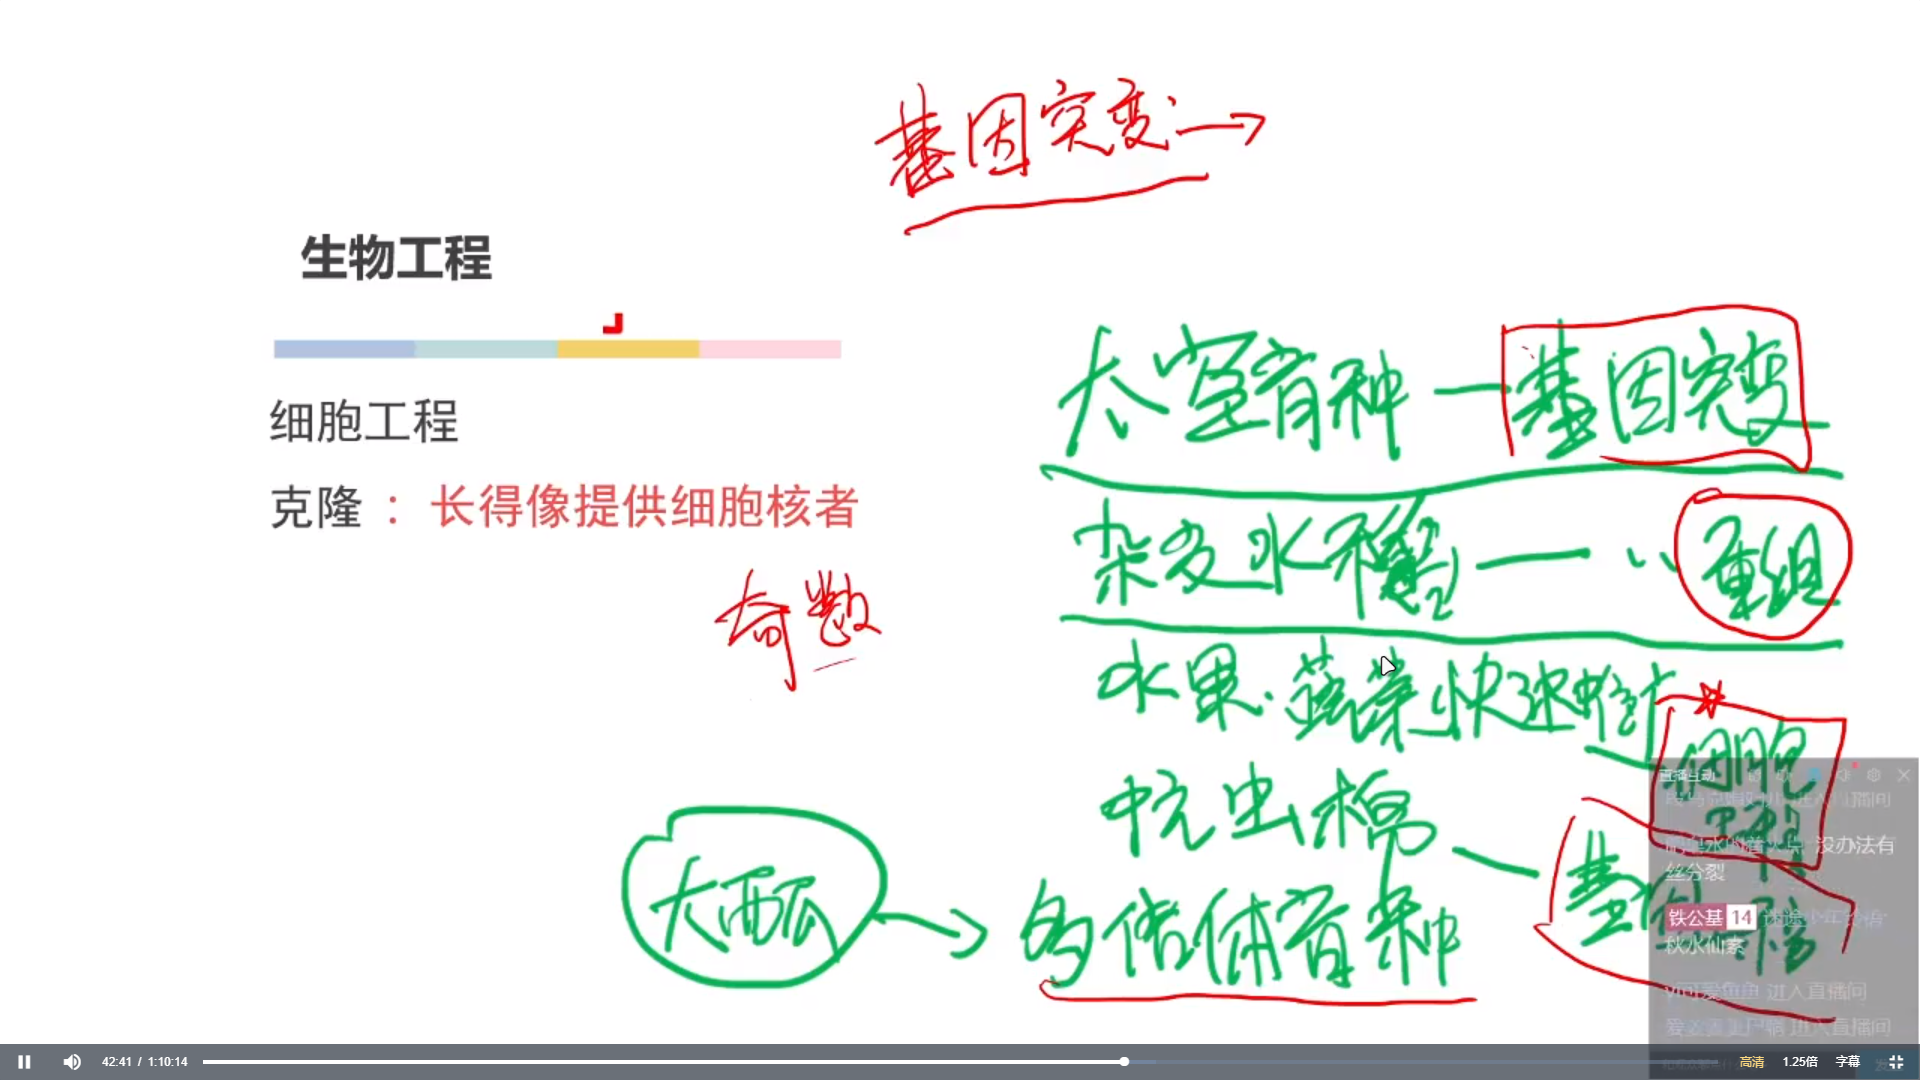 基因突变→
生物工程
细胞工程
克隆：长得像提供细胞核者
奇数
太空育种—基因突变
杂交水稻—重组
水果.蔬菜快速
细胞工程
抗虫棉—
大西瓜→多倍体育种
直播互动
没办法有
丝分裂
铁公基 14
秋水仙素
进入直播间
42:41 / 1:10:14
高清 1.25倍 字幕